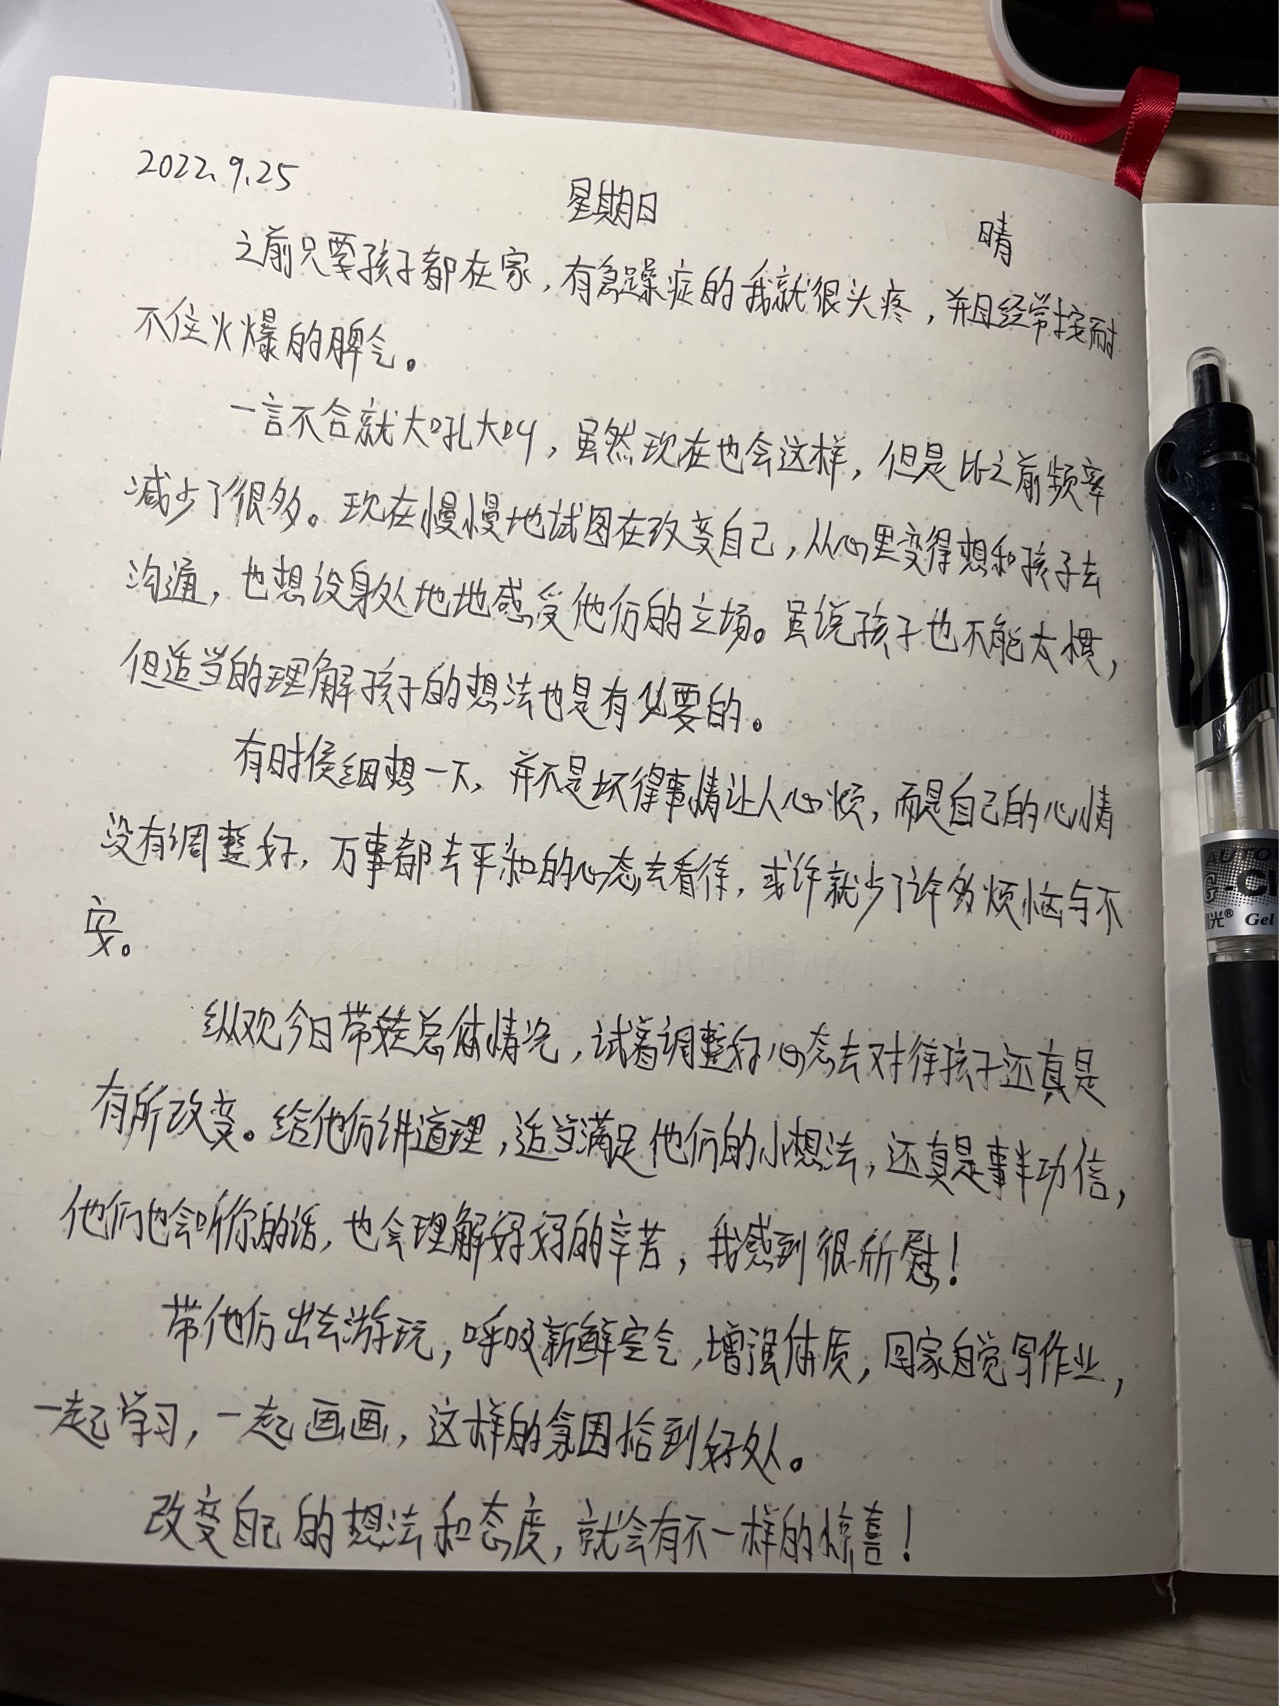 2022.9.25 星期日 晴
之前只要孩子都在家，有急躁症的我就很头疼，并且经常按耐
不住火爆的脾气。
一言不合就大吼大叫，虽然现在也会这样，但是比之前频率
减少了很多。现在慢慢地试图在改变自己，从心里变得想和孩子去
沟通，也想设身处地地感受他们的立场。虽说孩子也不能太惯，
但适当的理解孩子的想法也是有必要的。
有时候细想一下，并不是坏得事情让人心烦，而是自己的心情
没有调整好，万事都去平和的心态去看待，或许就少了许多烦恼与不
安。
纵观今日带娃总体情况，试着调整好心态去对待孩子还真是
有所改变。给他们讲道理，适当满足他们的小想法，还真是事半功倍，
他们也会听你的话，也会理解妈妈的辛苦，我感到很欣慰！
带他们出去游玩，呼吸新鲜空气，增强体质，回家自觉写作业，
一起学习，一起画画，这样的氛围恰到好处。
改变自己的想法和态度，就会有不一样的惊喜！
AUTO
G-C
光® Gel